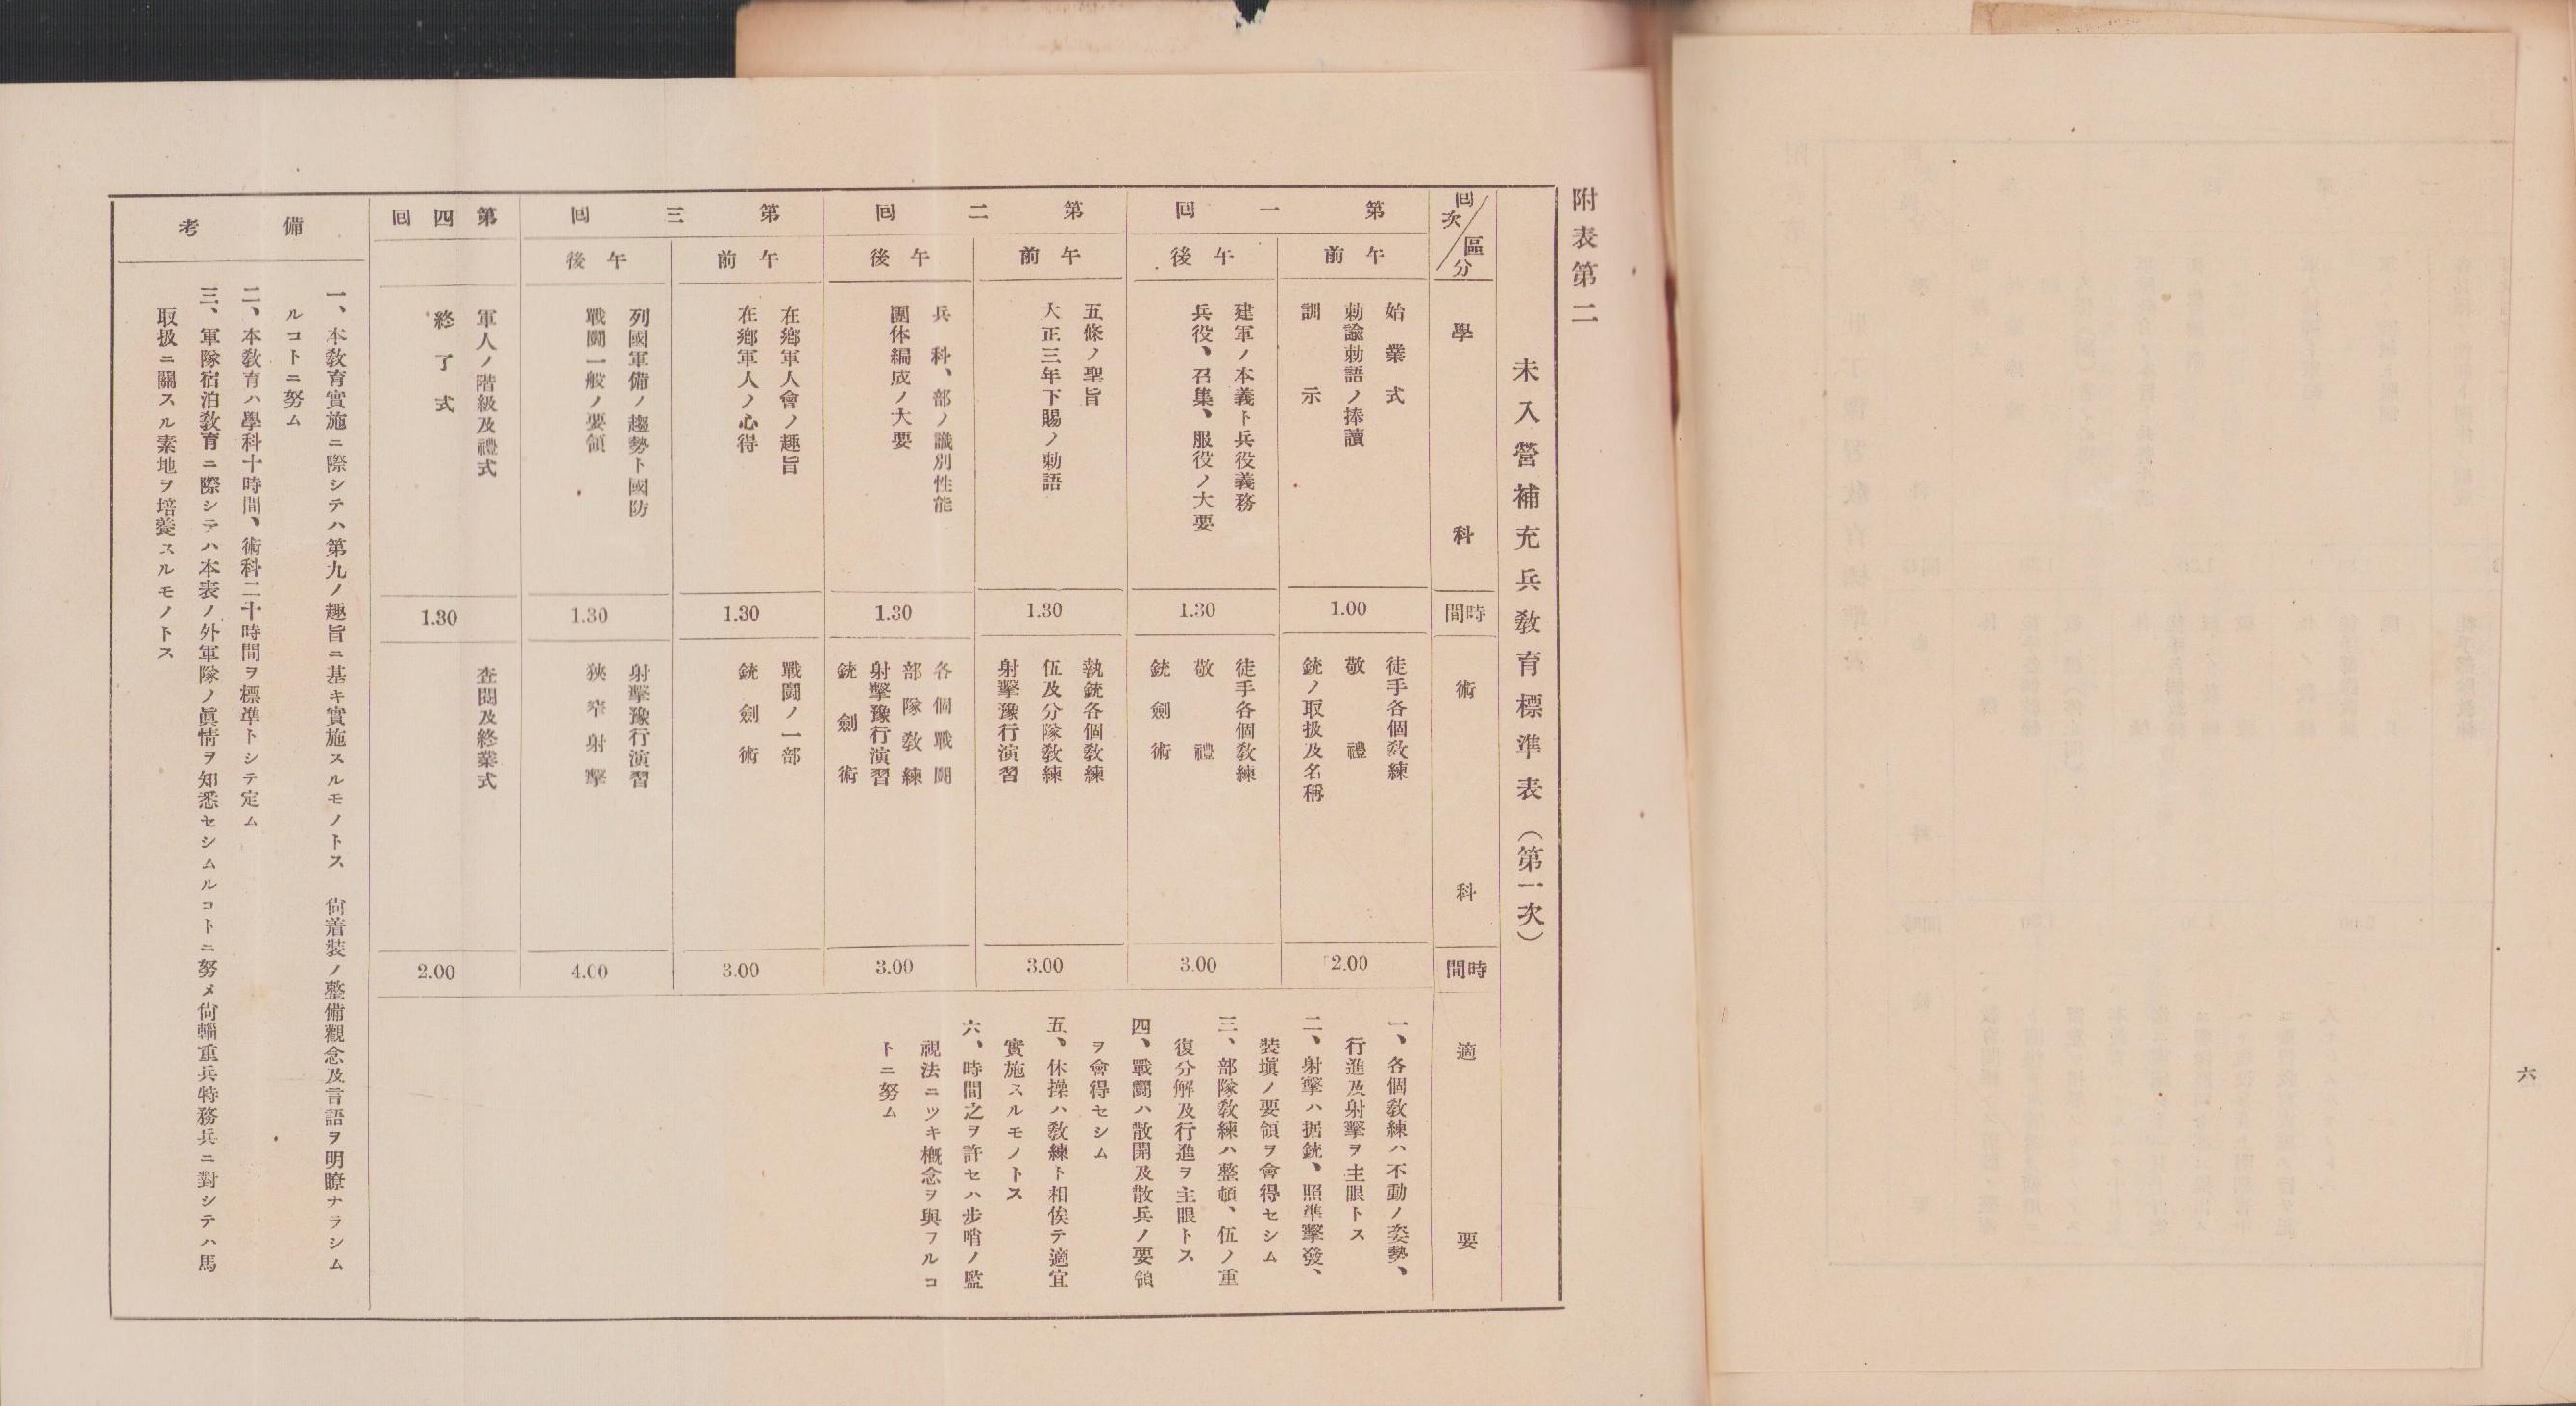 附表第二
未入營補充兵敎育標準表（第一次）
回次／區分
學科
時間
術科
時間
適要
第一回
午前
始業式
勅諭勅語ノ捧讀
訓示
1.00
徒手各個敎練
敬禮
銃ノ取扱及名稱
2.00
午後
建軍ノ本義ト兵役義務
兵役、召集、服役ノ大要
1.30
徒手各個敎練
敬禮
銃劍術
3.00
第二回
午前
五條ノ聖旨
大正三年下賜ノ勅語
1.30
執銃各個敎練
伍及分隊敎練
射擊豫行演習
3.00
午後
兵科、部ノ識別性能
團体編成ノ大要
1.30
各個戰鬪
部隊敎練
射擊豫行演習
銃劍術
3.00
第三回
午前
在鄕軍人會ノ趣旨
在鄕軍人ノ心得
1.30
戰鬪ノ一部
銃劍術
3.00
午後
列國軍備ノ趨勢ト國防
戰鬪一般ノ要領
1.30
射擊豫行演習
狹窄射擊
4.00
第四回
軍人ノ階級及禮式
終了式
1.30
査閱及終業式
2.00
一、各個敎練ハ不動ノ姿勢、
行進及射擊ヲ主眼トス
二、射擊ハ据銃、照準擊發、
裝塡ノ要領ヲ會得セシム
三、部隊敎練ハ整頓、伍ノ重
復分解及行進ヲ主眼トス
四、戰鬪ハ散開及散兵ノ要領
ヲ會得セシム
五、休操ハ敎練ト相俟テ適宜
實施スルモノトス
六、時間之ヲ許セハ步哨ノ監
視法ニツキ槪念ヲ與フルコ
トニ努ム
備考
一、本敎育實施ニ際シテハ第九ノ趣旨ニ基キ實施スルモノトス　尙着裝ノ整備觀念及言語ヲ明瞭ナラシム
ルコトニ努ム
二、本敎育ハ學科十時間、術科二十時間ヲ標準トシテ定ム
三、軍隊宿泊敎育ニ際シテハ本表ノ外軍隊ノ眞情ヲ知悉セシムルコトニ努メ尙輜重兵特務兵ニ對シテハ馬
取扱ニ關スル素地ヲ培養スルモノトス
六